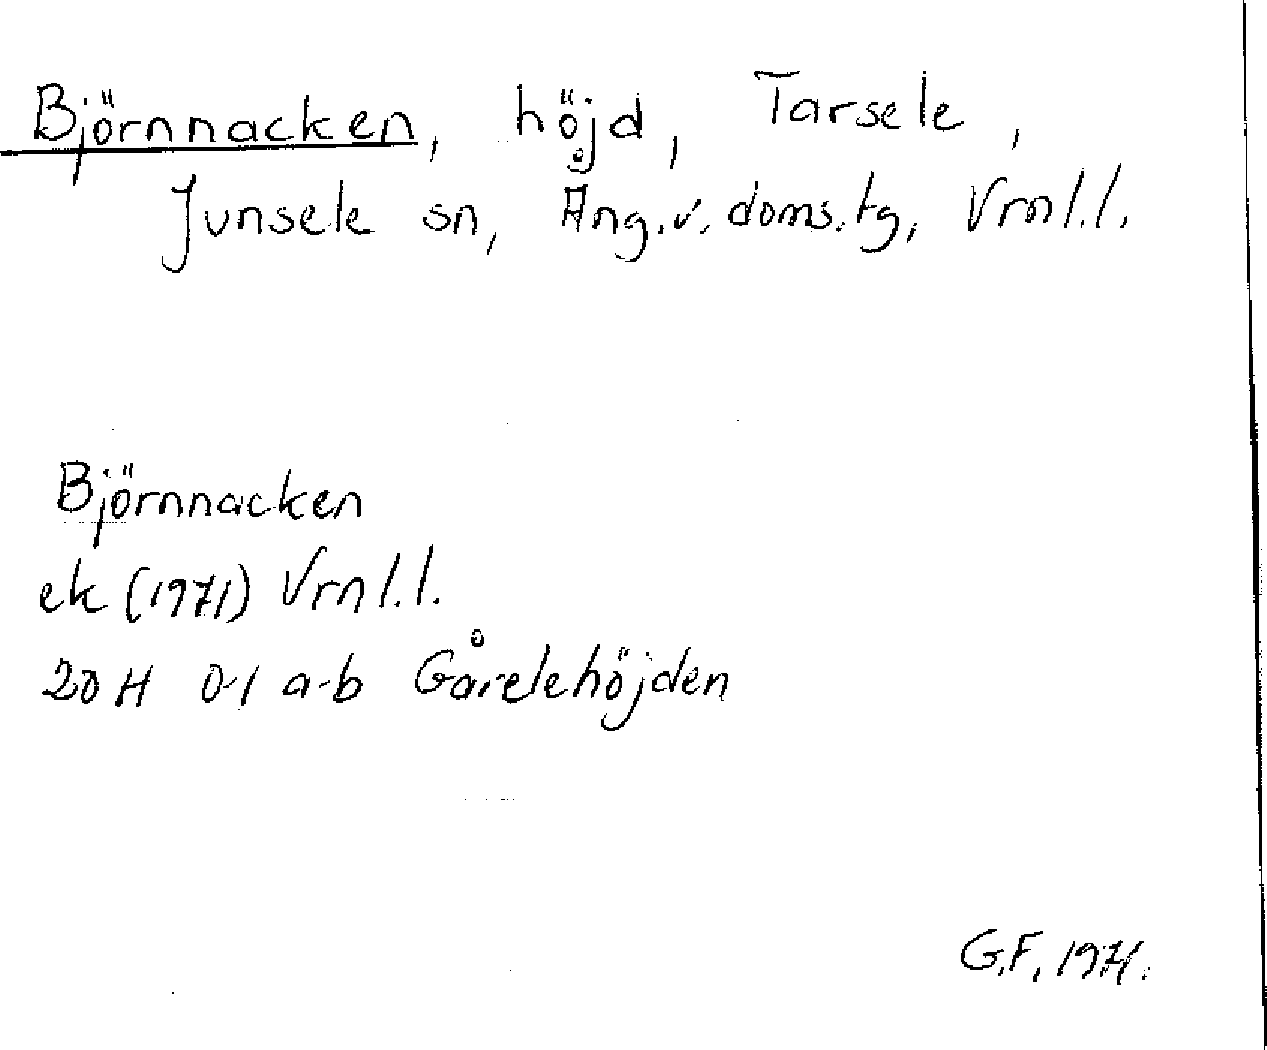 Björnnacken, höjd, Tarsele,
Junsele sn, Ång.v. doms.tg, Vrnl.l.
Björnnacken
ek (1971) Vrnl.l.
20 H 0-1 a-b Gårelehöjden
G.F. 1971.